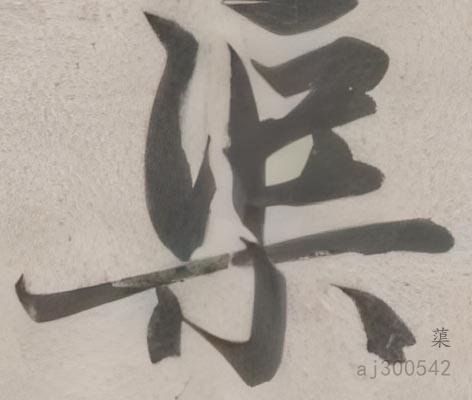 渠
aj300542